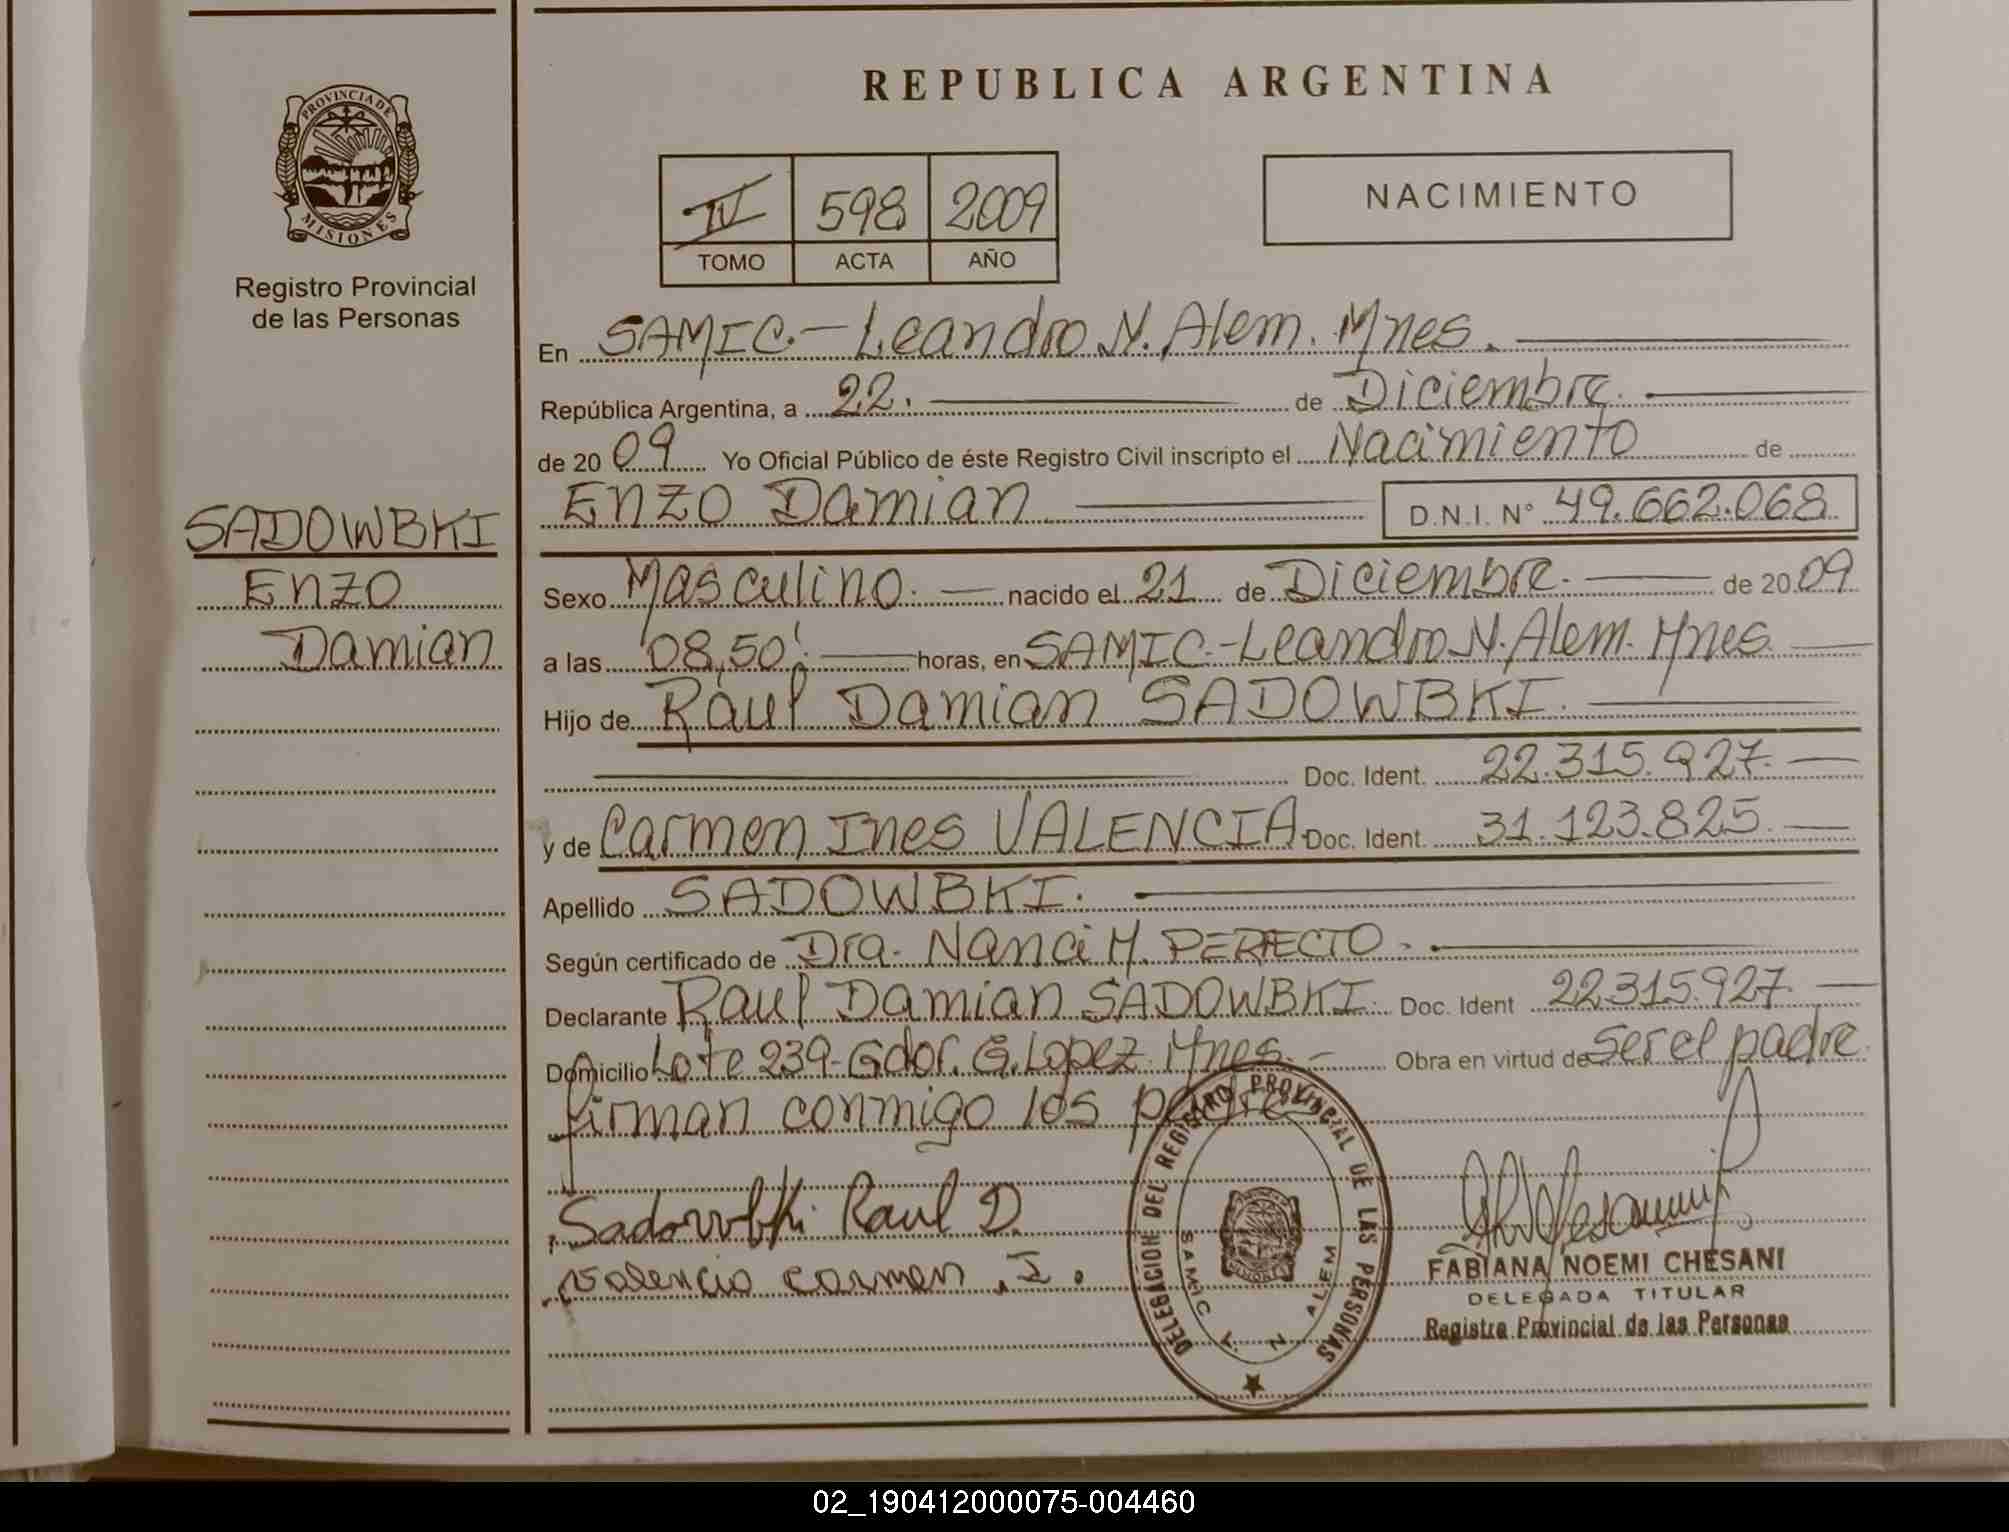 REPUBLICA ARGENTINA
PROVINCIA DE
MISIONES
Registro Provincial
de las Personas
IV 598 2009
TOMO ACTA AÑO
NACIMIENTO
En SAMIC.- Leandro N. Alem. Mnes.
República Argentina, a 22. de Diciembre.
de 20 09 Yo Oficial Público de éste Registro Civil inscripto el Nacimiento de
Enzo Damian D.N.I. N° 49.662.068
SADOWBKI
Enzo
Damian
Sexo Masculino. nacido el 21 de Diciembre. de 20 09
a las 08,50' horas, en SAMIC.-Leandro N. Alem. Mnes.
Hijo de Raul Damian SADOWBKI.
Doc. Ident. 22.315.927.
y de Carmen Ines VALENCIA. Doc. Ident. 31.123.825.
Apellido SADOWBKI.
Según certificado de Dra. Nanci M. PERFECTO.
Declarante Raul Damian SADOWBKI. Doc. Ident 22315.927.
Domicilio Lote 239-Gdor. G. Lopez. Mnes. Obra en virtud de Ser el padre.
firman conmigo los padres
Sadowbki Raul D.
Valencia Carmen .I.
DELEGACION DEL REGISTRO PROVINCIAL DE LAS PERSONAS
SAMIC L. N. ALEM
FABIANA NOEMI CHESANI
DELEGADA TITULAR
Registro Provincial de las Personas
02_190412000075-004460